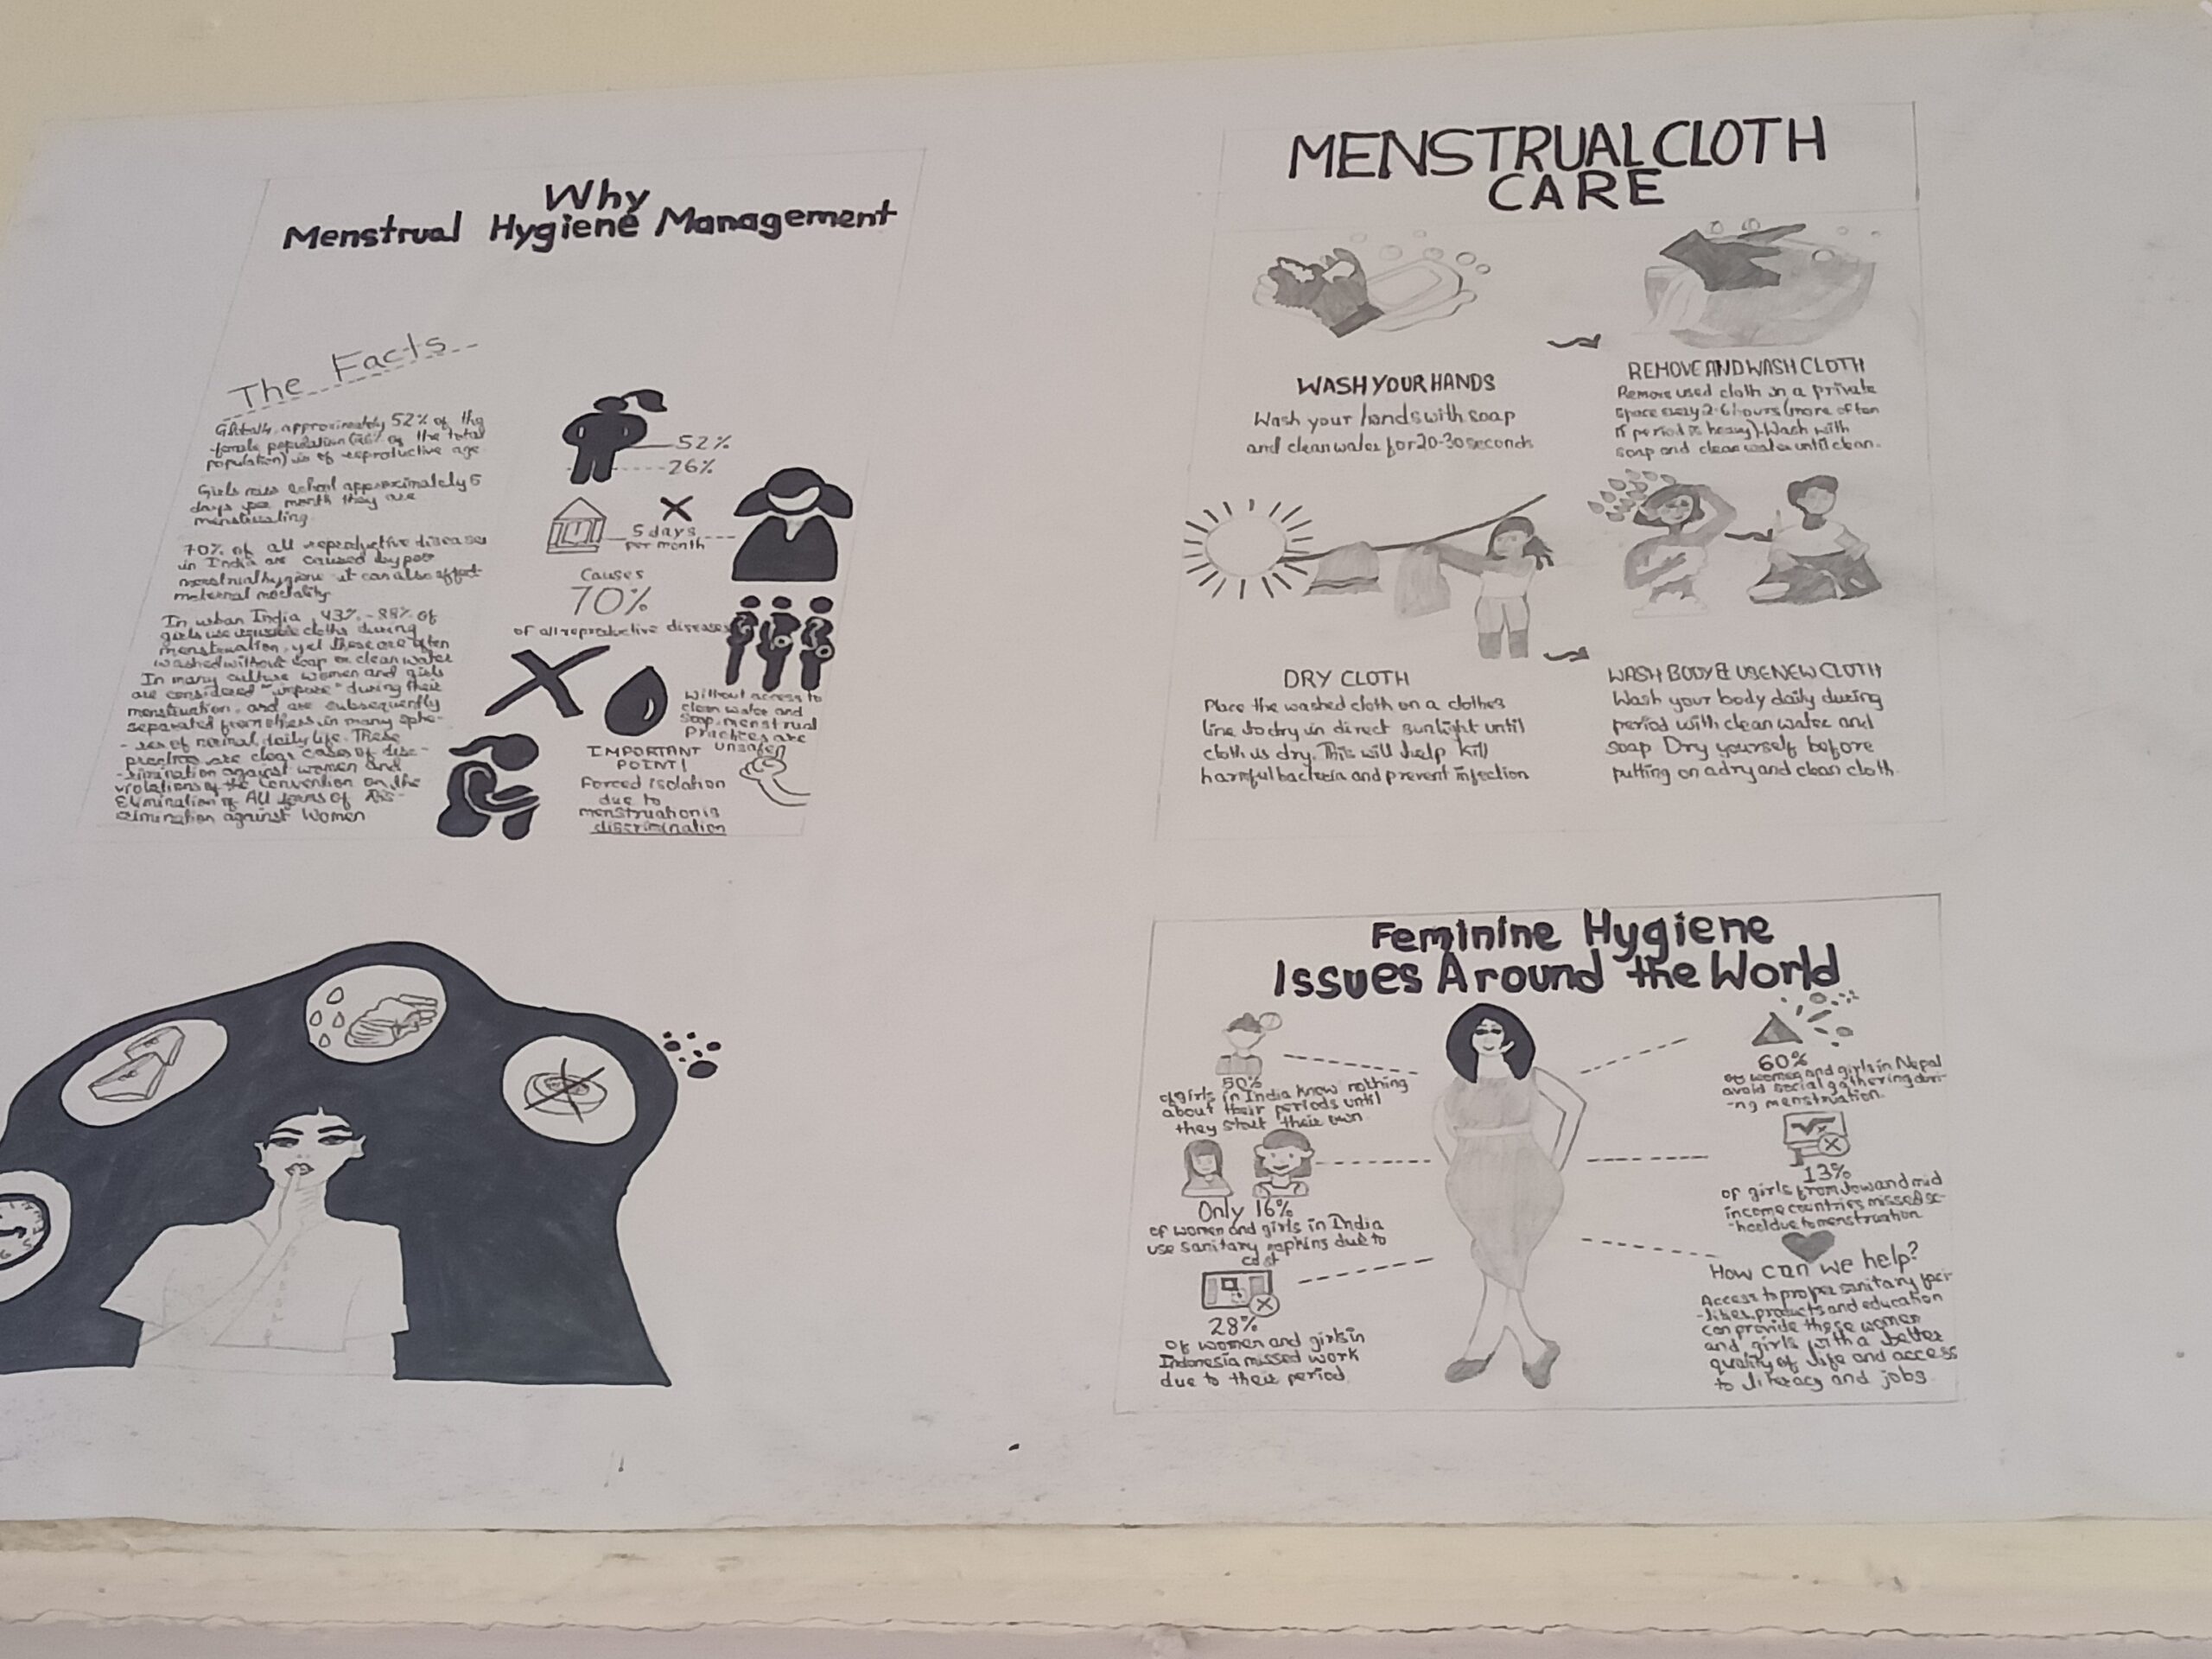 Why
Menstrual Hygiene Management
The Facts
approximately 52% of the
female population (26% of the total
population) is of reproductive age.
Girls miss school approximately 5
days per month they are
menstruating.
70% of all reproductive diseases
in India are caused by poor
menstrual hygiene it can also affect
maternal mortality.
In urban India, 43% - 88% of
girls use reusable cloths during
menstruation, yet these are often
washed without soap or clean water
In many culture women and girls
are considered "impure" during their
menstruation, and are subsequently
separated from others in many sphe-
-res of normal daily life. These
practices are clear cases of disc-
-rimination against women and
violations of the Convention on the
Elimination of All forms of Dis-
crimination against Women
52%
26%
5 days
per month
Causes
70%
of all reproductive diseases
Without access to
clean water and
Soap, menstrual
Practices are
unsafe
IMPORTANT
POINT!
Forced isolation
due to
menstruation is
discrimination
MENSTRUAL CLOTH
CARE
WASH YOUR HANDS
Wash your hands with soap
and clean water for 20-30 seconds
REMOVE AND WASH CLOTH
Remove used cloth in a private
space every 2-6 hours (more often
if period is heavy). Wash with
soap and clean water until clean.
DRY CLOTH
Place the washed cloth on a clothes
line to dry in direct sunlight until
cloth is dry. This will help kill
harmful bacteria and prevent infection
WASH BODY & USE NEW CLOTH
Wash your body daily during
period with clean water and
soap Dry yourself before
putting on a dry and clean cloth.
Feminine Hygiene
Issues Around the World
50%
of girls in India know nothing
about their periods until
they start their own
Only 16%
of women and girls in India
use sanitary napkins due to
cost
28%
of women and girls in
Indonesia missed work
due to their period
60%
of women and girls in Nepal
avoid social gathering duri-
-ng menstruation.
13%
of girls from low and mid
income countries missed sc-
-hool due to menstruation
How can we help?
Access to proper sanitary faci-
-lities, products and education
can provide these women
and girls with a better
quality of life and access
to literacy and jobs.